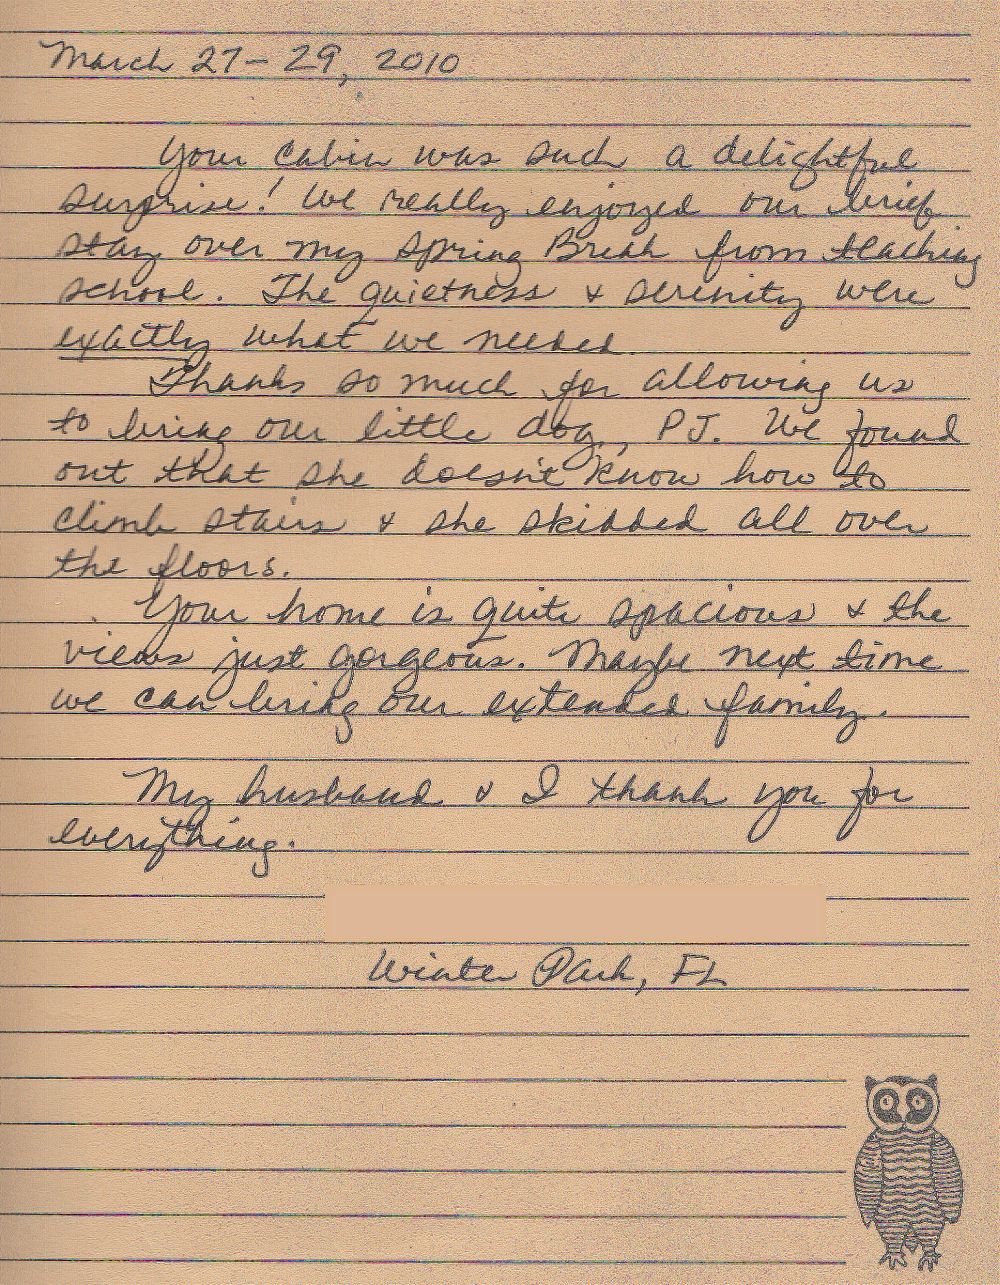 March 27-29, 2010
Your cabin was such a delightful
surprise! We really enjoyed our brief
stay over my Spring Break from teaching
school. The quietness & serenity were
exactly what we needed.
Thanks so much for allowing us
to bring our little dog, PJ. We found
out that she doesn't know how to
climb stairs & she skidded all over
the floors.
Your home is quite spacious & the
views just gorgeous. Maybe next time
we can bring our extended family.
My husband & I thank you for
everything.
Winter Park, FL